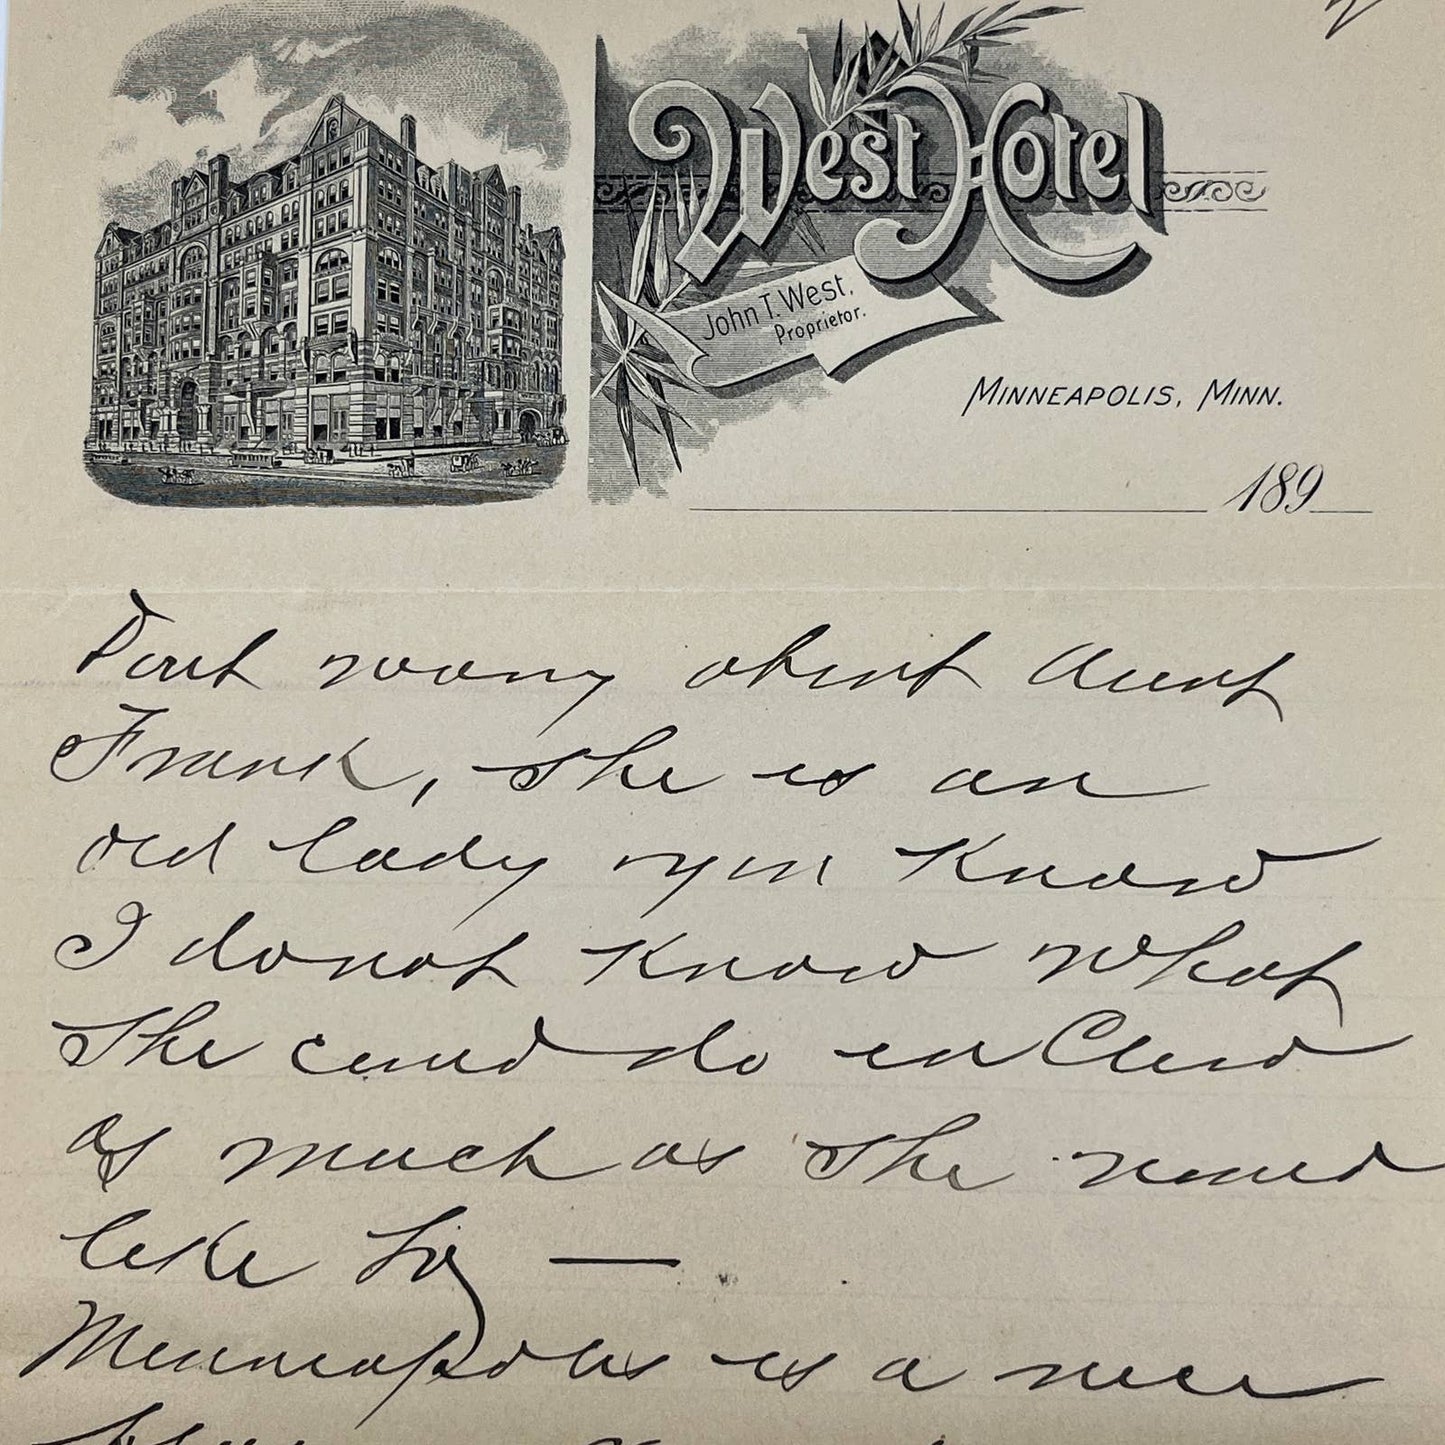 West Hotel
John T. West,
Proprietor.
Minneapolis, Minn.
189
Dont worry about Aunt
Frank, she is an
old lady you know
I do not know what
She could do in Cleud
as much as She would
like to —
Minneapolis is a nice